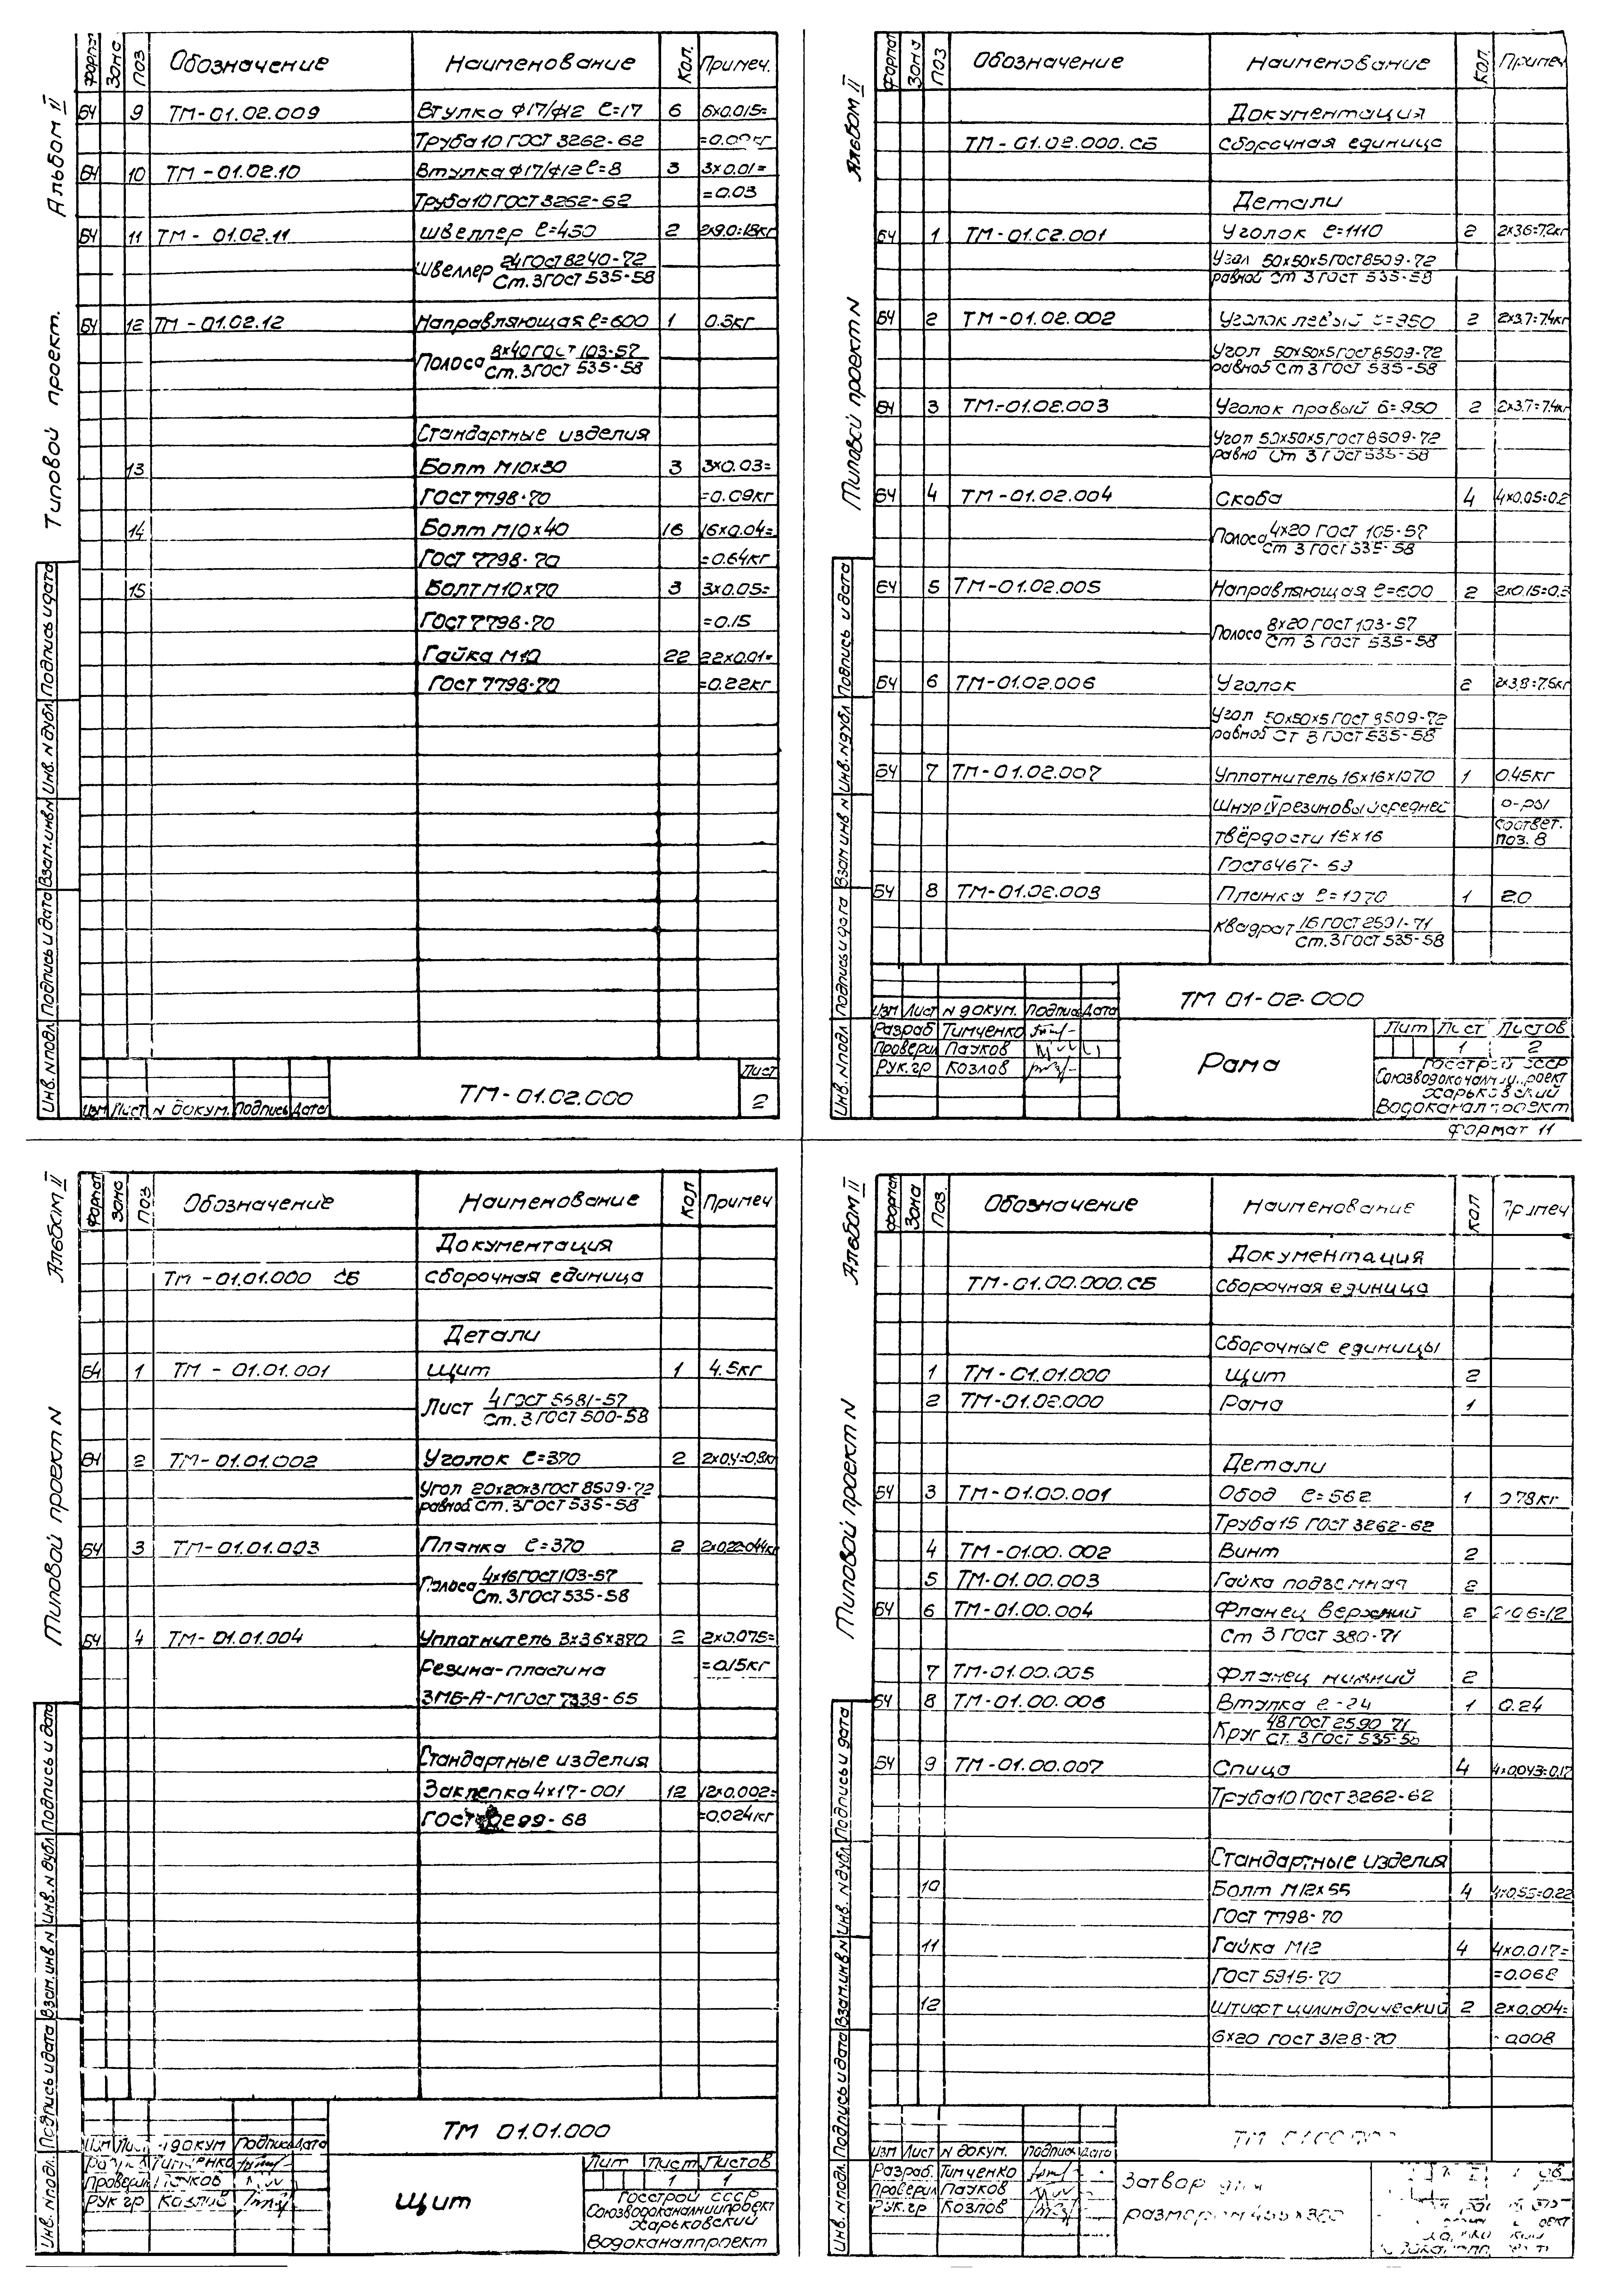 Альбом II
Типовой проект.
Формат Зона Поз Обозначение Наименование Кол. Примеч.
БЧ 9 ТМ-01.02.009 Втулка ф17/ф12 ℓ=17 6 6х0.015=
Труба 10 ГОСТ 3262-62
БЧ 10 ТМ-01.02.10 Втулка ф17/ф12 ℓ=8 3 3х0.01=
Труба 10 ГОСТ 3262-62 =0.03
БЧ 11 ТМ-01.02.11 Швеллер ℓ=450 2 2х9.0=18кг
Швеллер 24 ГОСТ 8240-72
Ст. 3 ГОСТ 535-58
БЧ 12 ТМ-01.02.12 Направляющая ℓ=600 1
Полоса 8х40 ГОСТ 103-57
Ст. 3 ГОСТ 535-58
Стандартные изделия
13 Болт М10х30 3 3х0.03=
ГОСТ 7798-70 =0.09кг
14 Болт М10х40 16 16х0.04=
ГОСТ 7798-70 =0.64кг
15 Болт М10х70 3 3х0.05=
ГОСТ 7798-70 =0.15
Гайка М10 22 22х0.01=
ГОСТ 7798-70 =0.22кг
Инв. N подл Подпись и дата Взам. инв. N Инв. N дубл Подпись и дата
Изм Лист N докум. Подпись Дата
ТМ-01.02.000
Лист
2
Альбом II
Типовой проект N
Формат Зона Поз Обозначение Наименование Кол. Примеч
Документация
ТМ-01.02.000.СБ Сборочная единица
Детали
БЧ 1 ТМ-01.02.001 Уголок ℓ=1110 2 2х3.6=7.2кг
Угол 50х50х5 ГОСТ 8509-72
равноб Ст 3 ГОСТ 535-58
БЧ 2 ТМ-01.02.002 Уголок левый ℓ=950 2 2х3.7=7.4кг
Угол 50х50х5 ГОСТ 8509-72
равноб Ст 3 ГОСТ 535-58
БЧ 3 ТМ-01.02.003 Уголок правый ℓ=950 2 2х3.7=7.4кг
Угол 50х50х5 ГОСТ 8509-72
равно Ст 3 ГОСТ 535-58
БЧ 4 ТМ-01.02.004 Скоба 4 4х0.05=0.2
Полоса 4х20 ГОСТ
Ст 3 ГОСТ 535-58
БЧ 5 ТМ-01.02.005 Направляющая ℓ=600 2 2х0.15=0.3
Полоса 8х20 ГОСТ 103-57
Ст 3 ГОСТ 535-58
БЧ 6 ТМ-01.02.006 Уголок 2 2х3.8=7.6кг
Угол 50х50х5 ГОСТ 8509-72
равноб Ст 3 ГОСТ 535-58
БЧ 7 ТМ-01.02.007 Уплотнитель 16х16х1070 1 0.45кг
Шнур IV резиновый средней р-ры
твёрдости 16х16 соответ.
поз. 8
ГОСТ 6467-69
БЧ 8 ТМ-01.02.008 Планка ℓ=1070 1 2.0
Квадрат 16 ГОСТ 2591-71
Ст. 3 ГОСТ 535-58
Инв. N подл Подпись и дата Взам инв N Инв. N дубл Подпись и дата
ТМ 01-02.000
Изм Лист N докум. Подпись Дата
Разраб Тимченко
Проверил Пауков
Рук. гр Козлов
Рама
Лит Лист Листов
1 2
Госстрой СССР
Союзводоканалниипроект
Харьковский
Водоканалпроект
Формат 11
Альбом II
Типовой проект N
Формат Зона Поз Обозначение Наименование Кол Примеч
Документация
ТМ-01.01.000 СБ Сборочная единица
Детали
БЧ 1 ТМ-01.01.001 Щит 1 4.5кг
Лист 4 ГОСТ 5681-57
Ст. 3 ГОСТ 500-58
БЧ 2 ТМ-01.01.002 Уголок ℓ=370 2 2х0.4=0.8кг
Угол 20х20х3 ГОСТ 8509-72
равноб Ст. 3 ГОСТ 535-58
БЧ 3 ТМ-01.01.003 Планка ℓ=370 2 2х0.22=0.44кг
Полоса 4х16 ГОСТ 103-57
Ст. 3 ГОСТ 535-58
БЧ 4 ТМ-01.01.004 Уплотнитель 3х36х370 2 2х0.075=
Резина-пластина =0.15кг
3МБ-А-М ГОСТ 7338-65
Стандартные изделия
Заклепка 4х17-001 12 12х0.002=
ГОСТ =0.024кг
Инв. N подл. Подпись и дата Взам. инв N Инв. N дубл Подпись и дата
ТМ 01.01.000
Изм Лист N докум Подпись Дата
Разраб Тимченко
Проверил Пауков
Рук гр Козлов
Щит
Лит Лист Листов
1 1
Госстрой СССР
Союзводоканалниипроект
Харьковский
Водоканалпроект
Альбом II
Типовой проект N
Формат Зона Поз. Обозначение Наименование Кол Примеч
Документация
ТМ-01.00.000.СБ Сборочная единица
Сборочные единицы
1 ТМ-01.01.000 Щит 2
2 ТМ-01.02.000 Рама 1
Детали
БЧ 3 ТМ-01.00.001 Обод ℓ=562 1 0.78кг
Труба 15 ГОСТ 3262-62
4 ТМ-01.00.002 Винт 2
5 ТМ-01.00.003 Гайка подземная 2
БЧ 6 ТМ-01.00.004 Фланец верхний 2 2х0.6=1.2
Ст 3 ГОСТ 380-71
7 ТМ-01.00.005 Фланец нижний 2
БЧ 8 ТМ-01.00.006 Втулка ℓ-24 1 0.24
Круг 48 ГОСТ 2590-71
Ст. 3 ГОСТ 535-58
БЧ 9 ТМ-01.00.007 Спица 4 4х0.043=0.17
Труба 10 ГОСТ 3262-62
Стандартные изделия
10 Болт М12х55 4
ГОСТ 7798-70
11 Гайка М12 4 4х0.017=
ГОСТ 5915-70 =0.068
12 Штифт цилиндрический 2 2х0.004=
6х20 ГОСТ 3128-70 0.008
Инв. N подл. Подпись и дата Взам. инв. N Инв. N дубл Подпись и дата
Изм Лист N докум. Подпись Дата
Разраб. Тимченко
Проверил Пауков
Рук. гр Козлов
Затвор